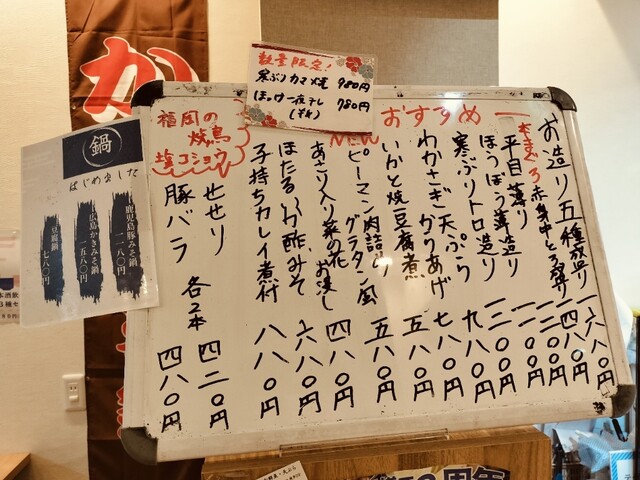 数量限定!
寒ぶりカマ焼 980円
ほっけ一夜干し 780円
(半分)
おすすめ
お造り五種盛り 一六八〇円
本まぐろ赤身中とろ盛り 二四八〇円
平目薄造り
ほうぼう薄造り
寒ぶりトロ造り 九八〇円
わかさぎ天ぷら 七八〇円
いかと焼豆腐煮 五八〇円
NEW
ピーマン肉詰め グラタン風 五八〇円
あさり入り菜の花 お浸し 四八〇円
ほたるいか酢みそ 六八〇円
子持ちカレイ煮付 八八〇円
福岡の焼鳥
塩コショウ
せせり 四二〇円
各2本
豚バラ 四八〇円
鍋
はじめました
鹿児島豚みそ鍋 一一八〇円
広島かきみそ鍋 一五八〇円
豆腐鍋 七八〇円
か